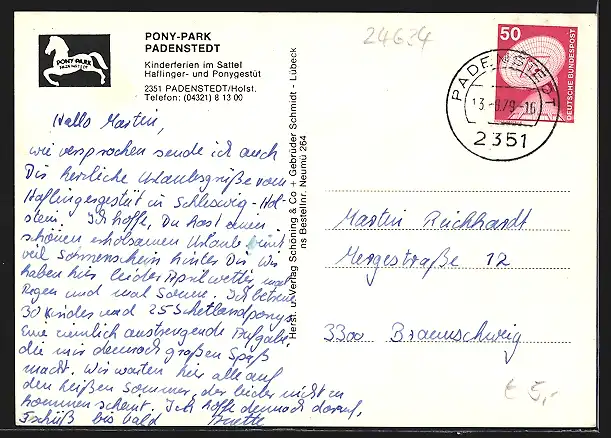 PONY-PARK
PADENSTEDT
Kinderferien im Sattel
Haflinger- und Ponygestüt
2351 PADENSTEDT/Holst.
Telefon: (04321) 8 13 00
PONY-PARK
PADENSTEDT
24634
50
DEUTSCHE BUNDESPOST
PADENSTEDT
2351
Hallo Martin,
wie versprochen sende ich auch
Dir herzliche Urlaubsgrüße vom
Haflingergestüt in Schleswig-Hol-
stein. Ich hoffe, Du hast einen
schönen erholsamen Urlaub mit
viel Sonnenschein hinter Dir. Wir
haben hier leider Aprilwetter, mal
Regen und mal Sonne. Ich betreue
30 Kinder und 25 Shetlandponys.
Eine ziemlich anstrengende Aufgabe,
die mir dennoch großen Spaß
macht. Wir warten hier alle auf
den heißen Sommer, der leider nicht zu
kommen scheint. Ich hoffe dennoch darauf,
Tschüß bis bald Anette
Herst. u. Verlag Schöning & Co + Gebrüder Schmidt - Lübeck
ns Bestellnr. Neumü 264
Martin Reichhardt
Mergestraße 12
3300 Braunschweig
€ 5,-